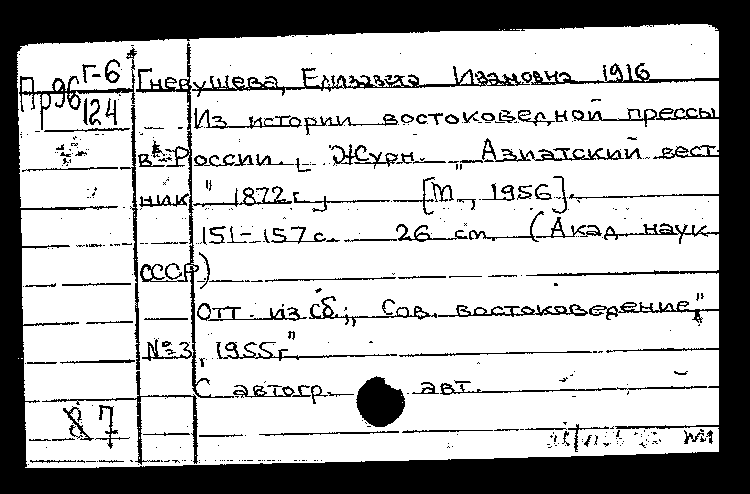 Г-6
Пр96
124
Гневушева, Елизавета Ивановна 1916
Из истории востоковедной прессы
в России. [ Журн. „Азиатский вест-
ник" 1872 г.] [М., 1956].
151-157 с. 26 см. (Акад наук
СССР)
Отт. из сб; „Сов. востоковедение",
№ 3, 1955г".
С автогр. авт.
8 7